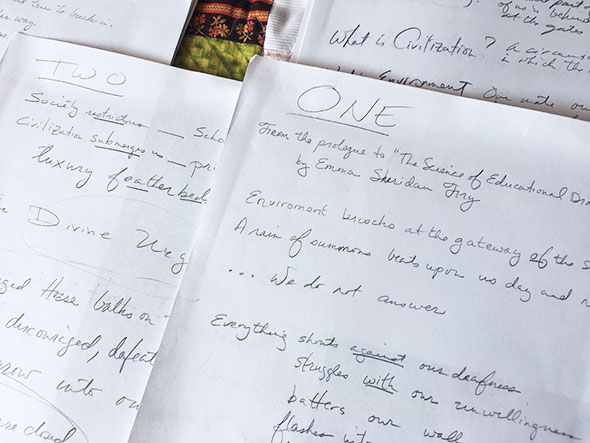 er way.
of us is behind
at the gates
What is Civilization?
in which the
Environment Our
TWO
Society restrictions — Scho
Civilization submerges us — pri
luxury featherbed
Divine Urg
Horse balks on
discouraged, defeat
row into ou
cloud
ONE
From the prologue to "The Science of Educational Dra
by Emma Sheridan Fry
Enviroment knocks at the gateway of the S
A rain of summons beats upon us day and n
... We do not answer
Everything shouts against our deafness
struggles with our unwillingness
batters our wall
flashes into